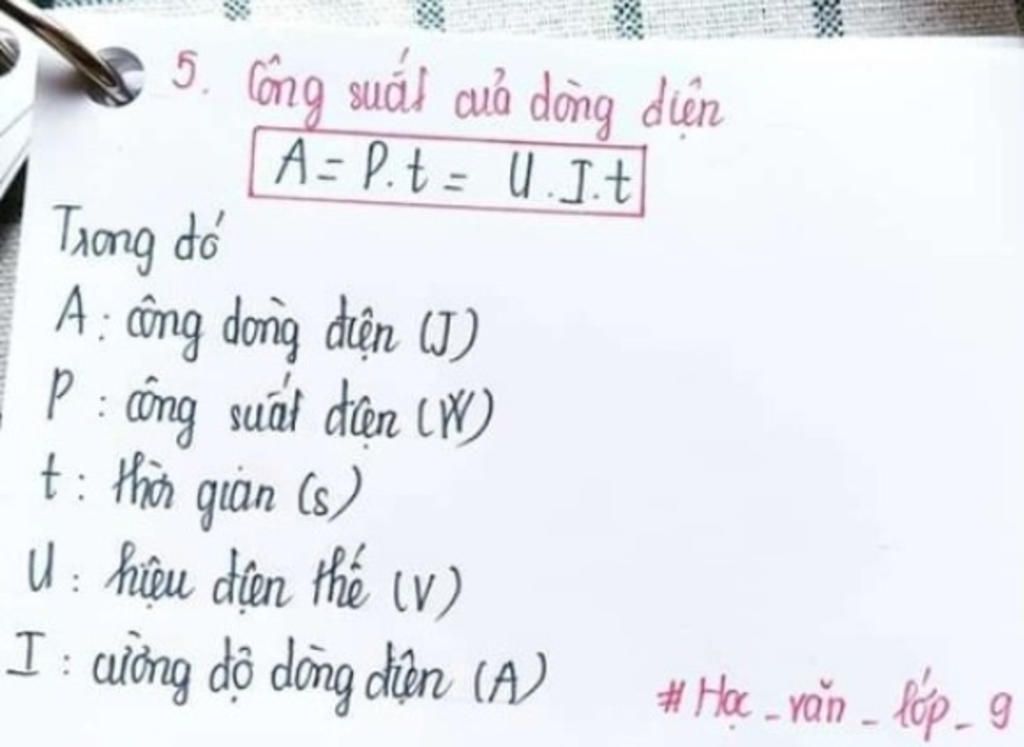 5. Công suất của dòng điện
A = P.t = U.I.t
Trong đó
A: công dòng điện (J)
P: công suất điện (W)
t: thời gian (s)
U: hiệu điện thế (V)
I: cường độ dòng điện (A)
#Học_văn_lớp_9